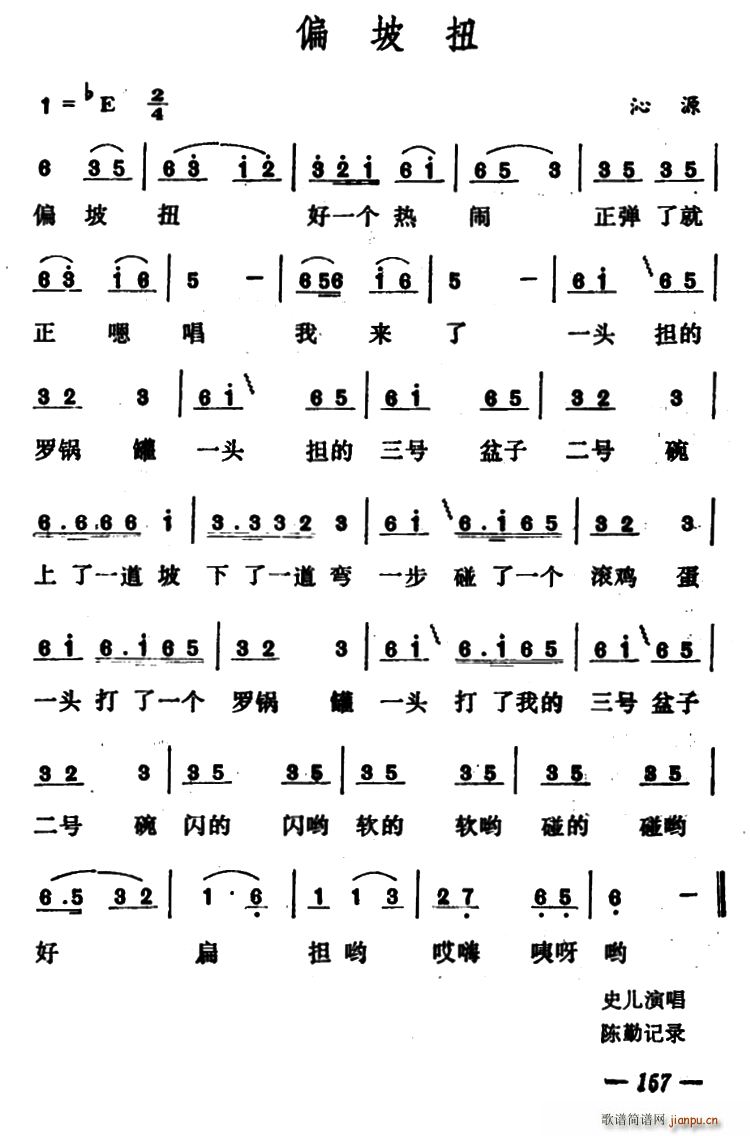 偏坡扭
1=♭E 2/4 沁源
6 35 | 63 12 | 321 61 | 65 3 | 35 35 |
偏坡 扭 好一个热 闹 正弹了就
63 16 | 5 — | 656 16 | 5 — | 61 65 |
正 嗯 唱 我 来 了 一头 担的
32 3 | 61 65 | 61 65 | 32 3 |
罗锅 罐 一头 担的 三号 盆子 二号 碗
6.666 6 1 | 3.332 3 | 61 6.165 | 32 3 |
上了一道坡 下了一道弯 一步 碰了一个 滚鸡 蛋
61 6.165 | 32 3 | 61 6.165 | 61 65 |
一头 打了一个 罗锅 罐 一头 打了我的 三号 盆子
32 3 | 35 35 | 35 35 | 35 35 |
二号 碗 闪的 闪哟 软的 软哟 碰的 碰哟
6.5 32 | 1·6 | 1 13 | 27 65 | 6 — ‖
好 扁 担哟 哎嗨 咦呀 哟
史儿演唱
陈勤记录
— 157 —
歌谱简谱网 jianpu.cn